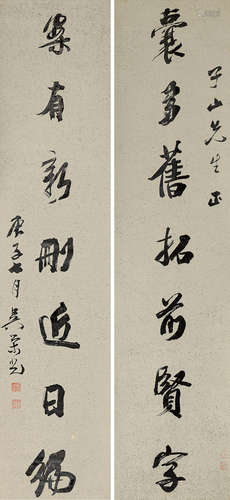 子山先生正
囊多舊拓前賢字
案有新刪近日編
庚子七月吳榮光